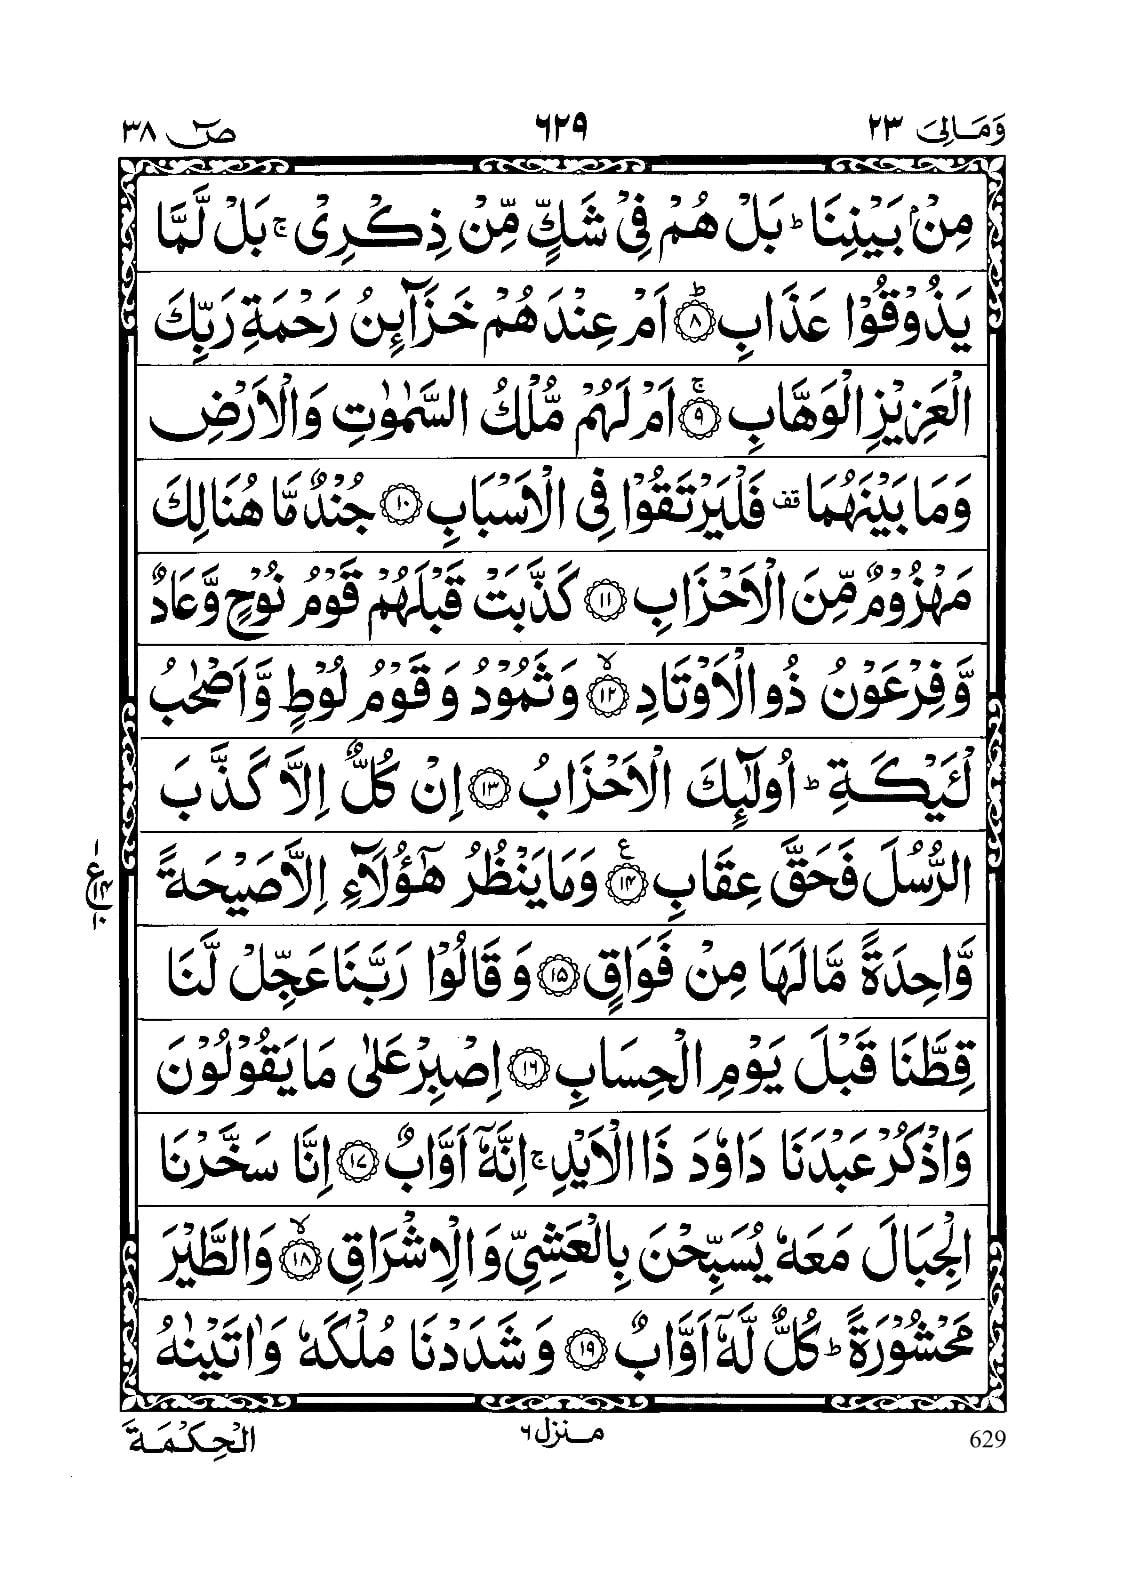 وَمَالِیَ ٢٣ ٦٢٩ صٓ ٣٨
مِنْۢ بَيْنِنَا ؕ بَلْ هُمْ فِيْ شَكٍّ مِّنْ ذِكْرِيْ ۚ بَلْ لَّمَّا
يَذُوْقُوْا عَذَابِ ﴿٨﴾ؕ اَمْ عِنْدَهُمْ خَزَآئِنُ رَحْمَةِ رَبِّكَ
الْعَزِيْزِ الْوَهَّابِ ﴿٩﴾ۚ اَمْ لَهُمْ مُّلْكُ السَّمٰوٰتِ وَالْاَرْضِ
وَمَا بَيْنَهُمَا ۫ فَلْيَرْتَقُوْا فِي الْاَسْبَابِ ﴿١٠﴾ جُنْدٌ مَّا هُنَالِكَ
مَهْزُوْمٌ مِّنَ الْاَحْزَابِ ﴿١١﴾ كَذَّبَتْ قَبْلَهُمْ قَوْمُ نُوْحٍ وَّعَادٌ
وَّفِرْعَوْنُ ذُو الْاَوْتَادِ ﴿١٢﴾ۙ وَثَمُوْدُ وَقَوْمُ لُوْطٍ وَّاَصْحٰبُ
لْـَٔيْكَةِ ؕ اُولٰٓئِكَ الْاَحْزَابُ ﴿١٣﴾ اِنْ كُلٌّ اِلَّا كَذَّبَ
الرُّسُلَ فَحَقَّ عِقَابِ ﴿١٤﴾ع وَمَا يَنْظُرُ هٰٓؤُلَآءِ اِلَّا صَيْحَةً
١ ع ١٤ ١٠
وَّاحِدَةً مَّا لَهَا مِنْ فَوَاقٍ ﴿١٥﴾ وَقَالُوْا رَبَّنَا عَجِّلْ لَّنَا
قِطَّنَا قَبْلَ يَوْمِ الْحِسَابِ ﴿١٦﴾ اِصْبِرْ عَلٰى مَا يَقُوْلُوْنَ
وَاذْكُرْ عَبْدَنَا دَاوٗدَ ذَا الْاَيْدِ ۚ اِنَّهٗٓ اَوَّابٌ ﴿١٧﴾ اِنَّا سَخَّرْنَا
الْجِبَالَ مَعَهٗ يُسَبِّحْنَ بِالْعَشِيِّ وَالْاِشْرَاقِ ﴿١٨﴾ۙ وَالطَّيْرَ
مَحْشُوْرَةً ؕ كُلٌّ لَّهٗٓ اَوَّابٌ ﴿١٩﴾ وَشَدَدْنَا مُلْكَهٗ وَاٰتَيْنٰهُ
الْحِكْمَةَ منزل ٦ 629